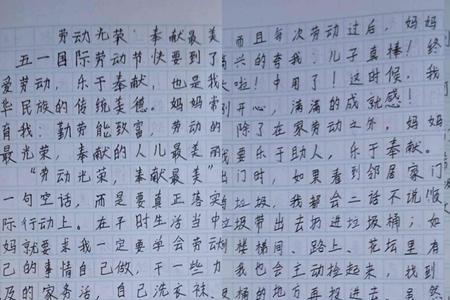 劳动光荣 奉献最美
五一国际劳动节快要到了
爱劳动，乐于奉献，也是我
华民族的传统美德。妈妈常
育我：勤劳能致富，劳动的
最光荣，奉献的人儿最美丽
“劳动光荣，奉献最美”
一句空话，而是要真正落实
际行动上。在平时生活当中
妈就要求我一定要学会劳动
己的事情自己做，干一些力
及的家务活，自己洗衣袜
而且每次劳动过后，妈妈
兴的夸我：儿子真棒！终
大啦！中用了！这时候，我
别开心，满满的成就感！
除了在家劳动之外，妈妈
我要乐于助人，乐于奉献。
出门时，如果看到邻居家门
有垃圾，我都会二话不说顺
垃圾带出去扔进垃圾桶；如
楼梯间、路上、花坛里有
我也会主动捡起来，找到
桶的地方再投进去。虽然